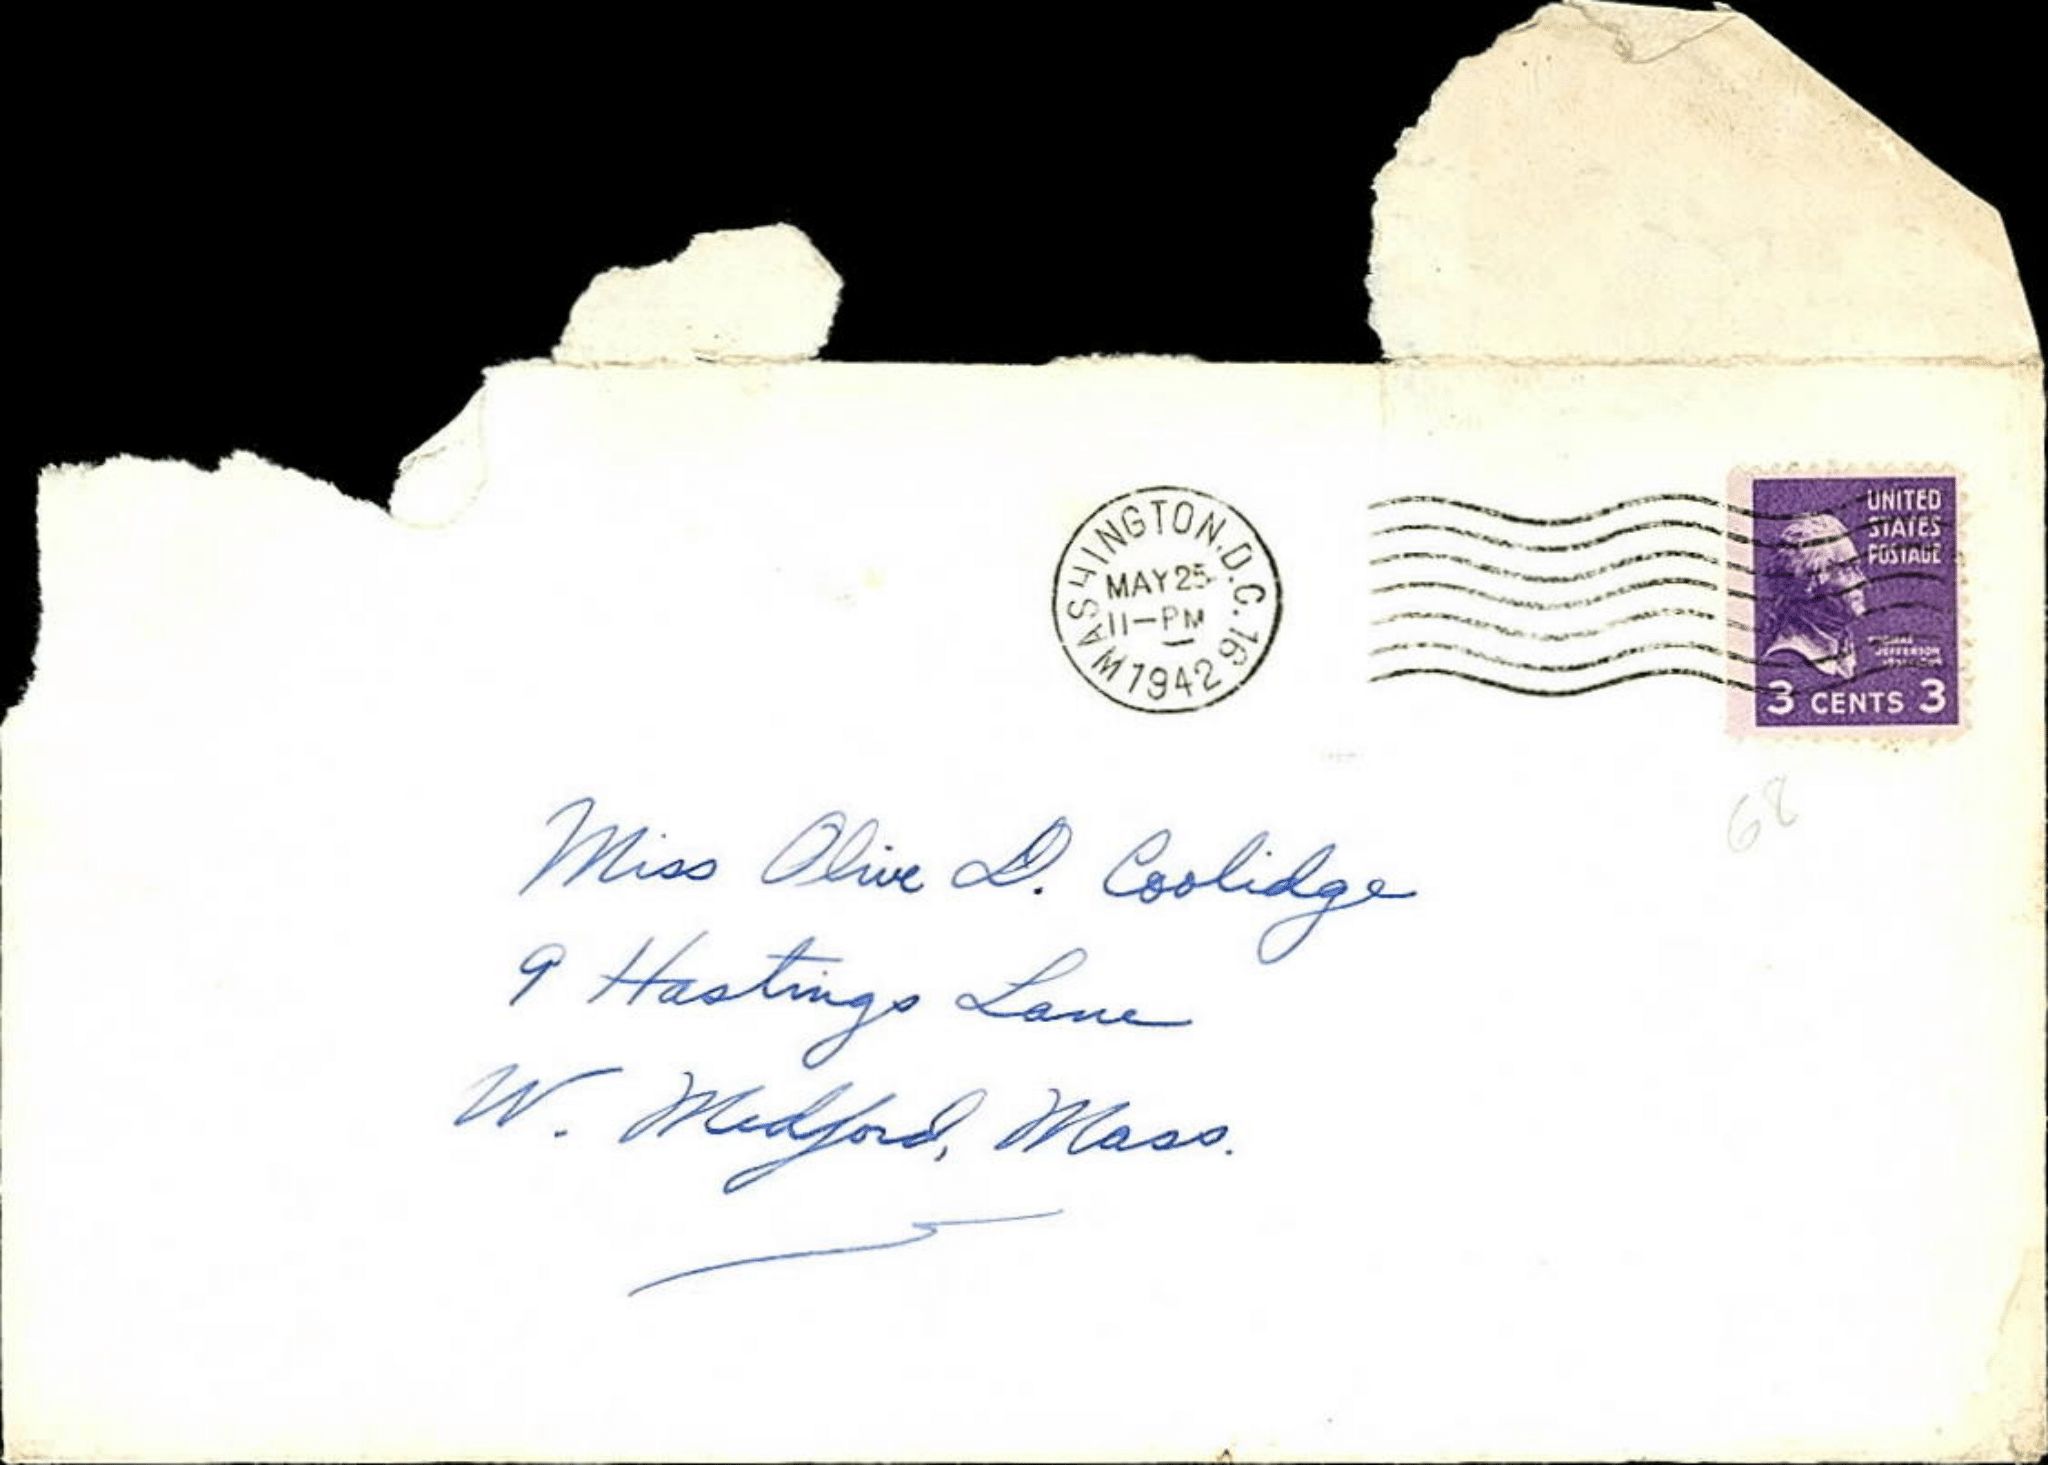 WASHINGTON, D.C. 16
MAY 25
11-PM
1942
UNITED
STATES
POSTAGE
JEFFERSON
3 CENTS 3
68
Miss Olive D. Coolidge
9 Hastings Lane
W. Medford, Mass.